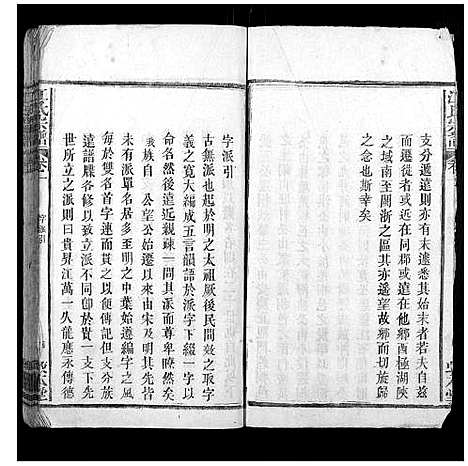 支分派遠則亦有未遽悉其始末者若夫自茲
而遷徙者或近在同郡或遠在他鄉西極湖陝
之域南至于閩浙之區其亦遥望故鄉而切旋歸
之念也斯幸矣
字派引
古無派也有之自明之太祖厥後民間效之取字
義之寛大編成五言韻語於字下綴一字以
命名然後遠近親疎一問其派而尊卑瞭然矣
我族自 公望公始遷以來由宋及明其先皆
未有派單名居多至明之中葉始遵編字之風
每於雙名首字連用一字以便傳記但支分族
遠譜牒各修以致立派不同卽於貴一支下先
世所立之派則曰貴昇江萬一久龍應永傳德
江氏宗譜
卷一
字派引